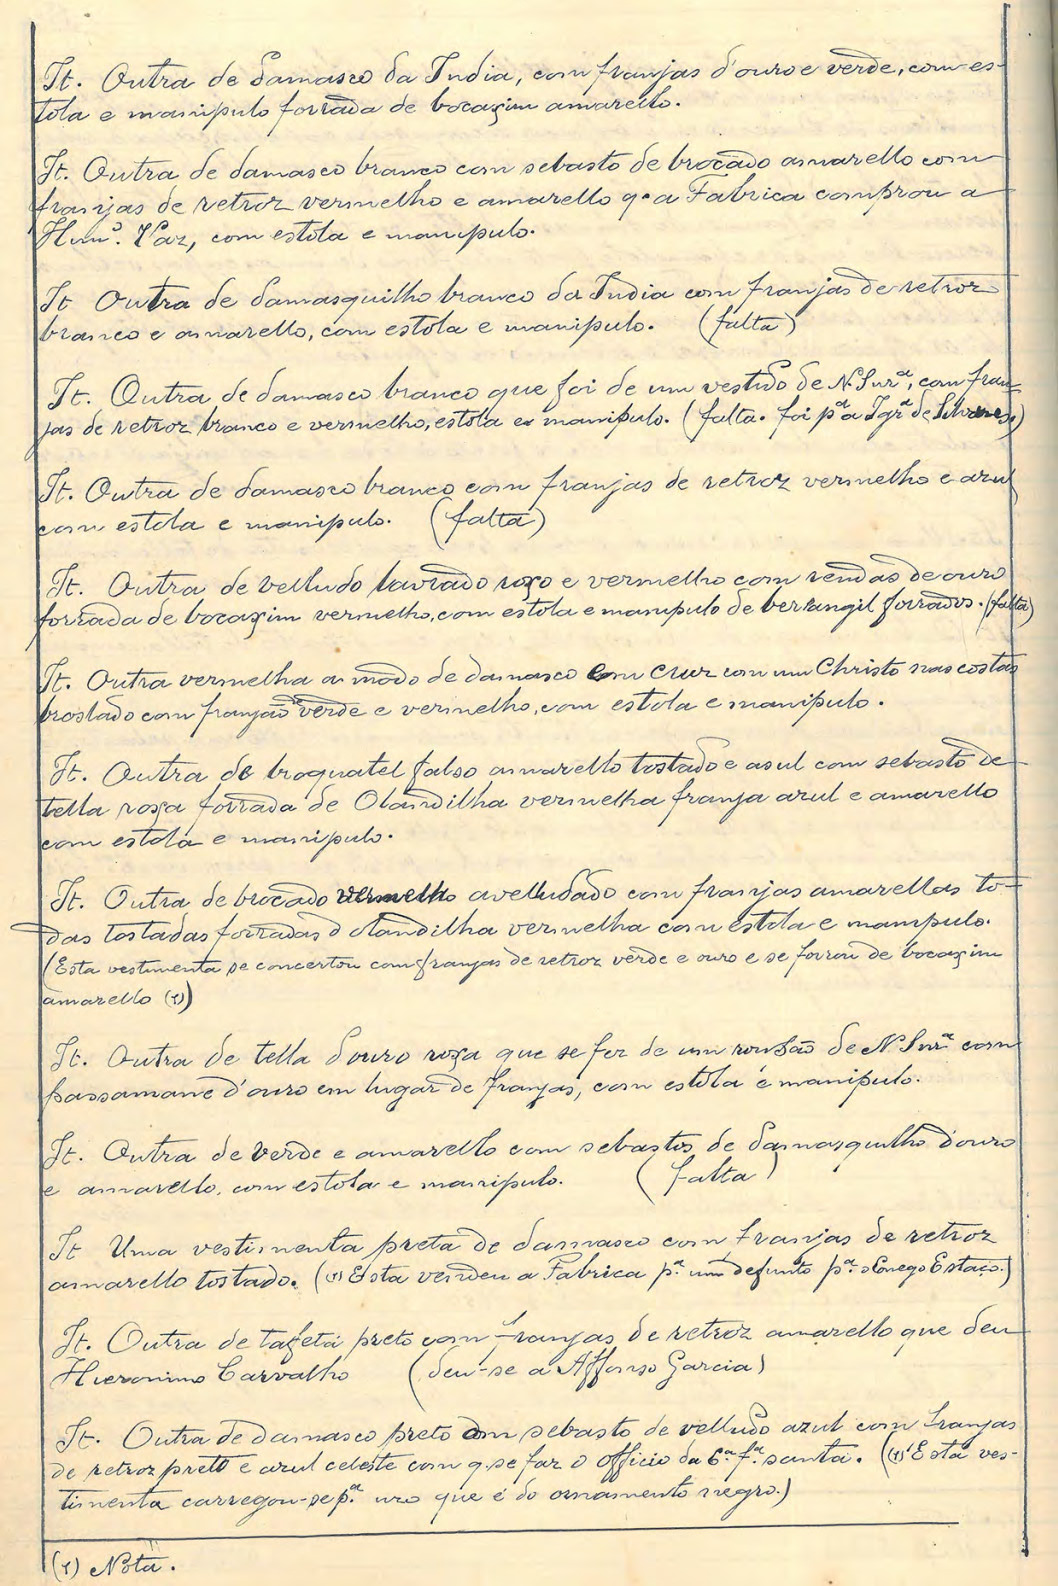 It. Outra de damasco da India, com franjas d'ouro e verde, com es-
tola e manipulo forrada de bocaxim amarello.
It. Outra de damasco branco com sebasto de brocado amarello com
franjas de retroz vermelho e amarello q. a Fabrica comprou a
Vaz, com estola e manipulo.
It Outra de damasquilho branco da India com franjas de retroz
branco e amarello, com estola e manipulo. (falta)
It. Outra de damasco branco que foi de um vestido de N. Snrª, com fran-
jas de retroz branco e vermelho, estola e manipulo. (falta. foi pª a Igrª de Silvares)
It. Outra de damasco branco com franjas de retroz vermelho e azul
com estola e manipulo. (falta)
It. Outra de velludo lavrado roxo e vermelho com rendas de ouro
forrada de bocaxim vermelho, com estola e manipulo de bertangil forrados. (falta)
It. Outra vermelha a modo de damasco com cruz com um Christo nas costas
broslado com franjão de verde e vermelho, com estola e manipulo.
It. Outra de broquatel falso amarello tostado e asul com sebasto de
tella roxa forrada de Olandilha vermelha franja azul e amarello
com estola e manipulo.
It. Outra de brocado vermelho avelludado com franjas amarellas to-
das tostadas forradas d olandilha vermelha com estola e manipulo.
(Esta vestimenta se concertou com franjas de retroz verde e ouro e se forrou de bocaxim
amarello (1))
It. Outra de tella d'ouro roxa que se fez de um roupão de N Snrª com
passamane d'ouro em lugar de franjas, com estola e manipulo.
It. Outra de verde e amarello com sebastos de damasquilho d'ouro
e amarello, com estola e manipulo. (falta)
It Uma vestimenta preta de damasco com franjas de retroz
amarello tostado. (1) Esta vendeu a Fabrica pª um defunto pª o Conego Estaço.)
It. Outra de tafetá preto com franjas de retroz amarello que deu
Hieronimo Carvalho (deu-se a Affonso Garcia)
It. Outra de damasco preto com sebasto de velludo azul com franjas
de retroz preto e azul celeste com q. se faz o officio da 6ª fª santa. ((1) Esta ves-
timenta carregou-se pª uso que é do ornamento negro.)
(1) Nota.